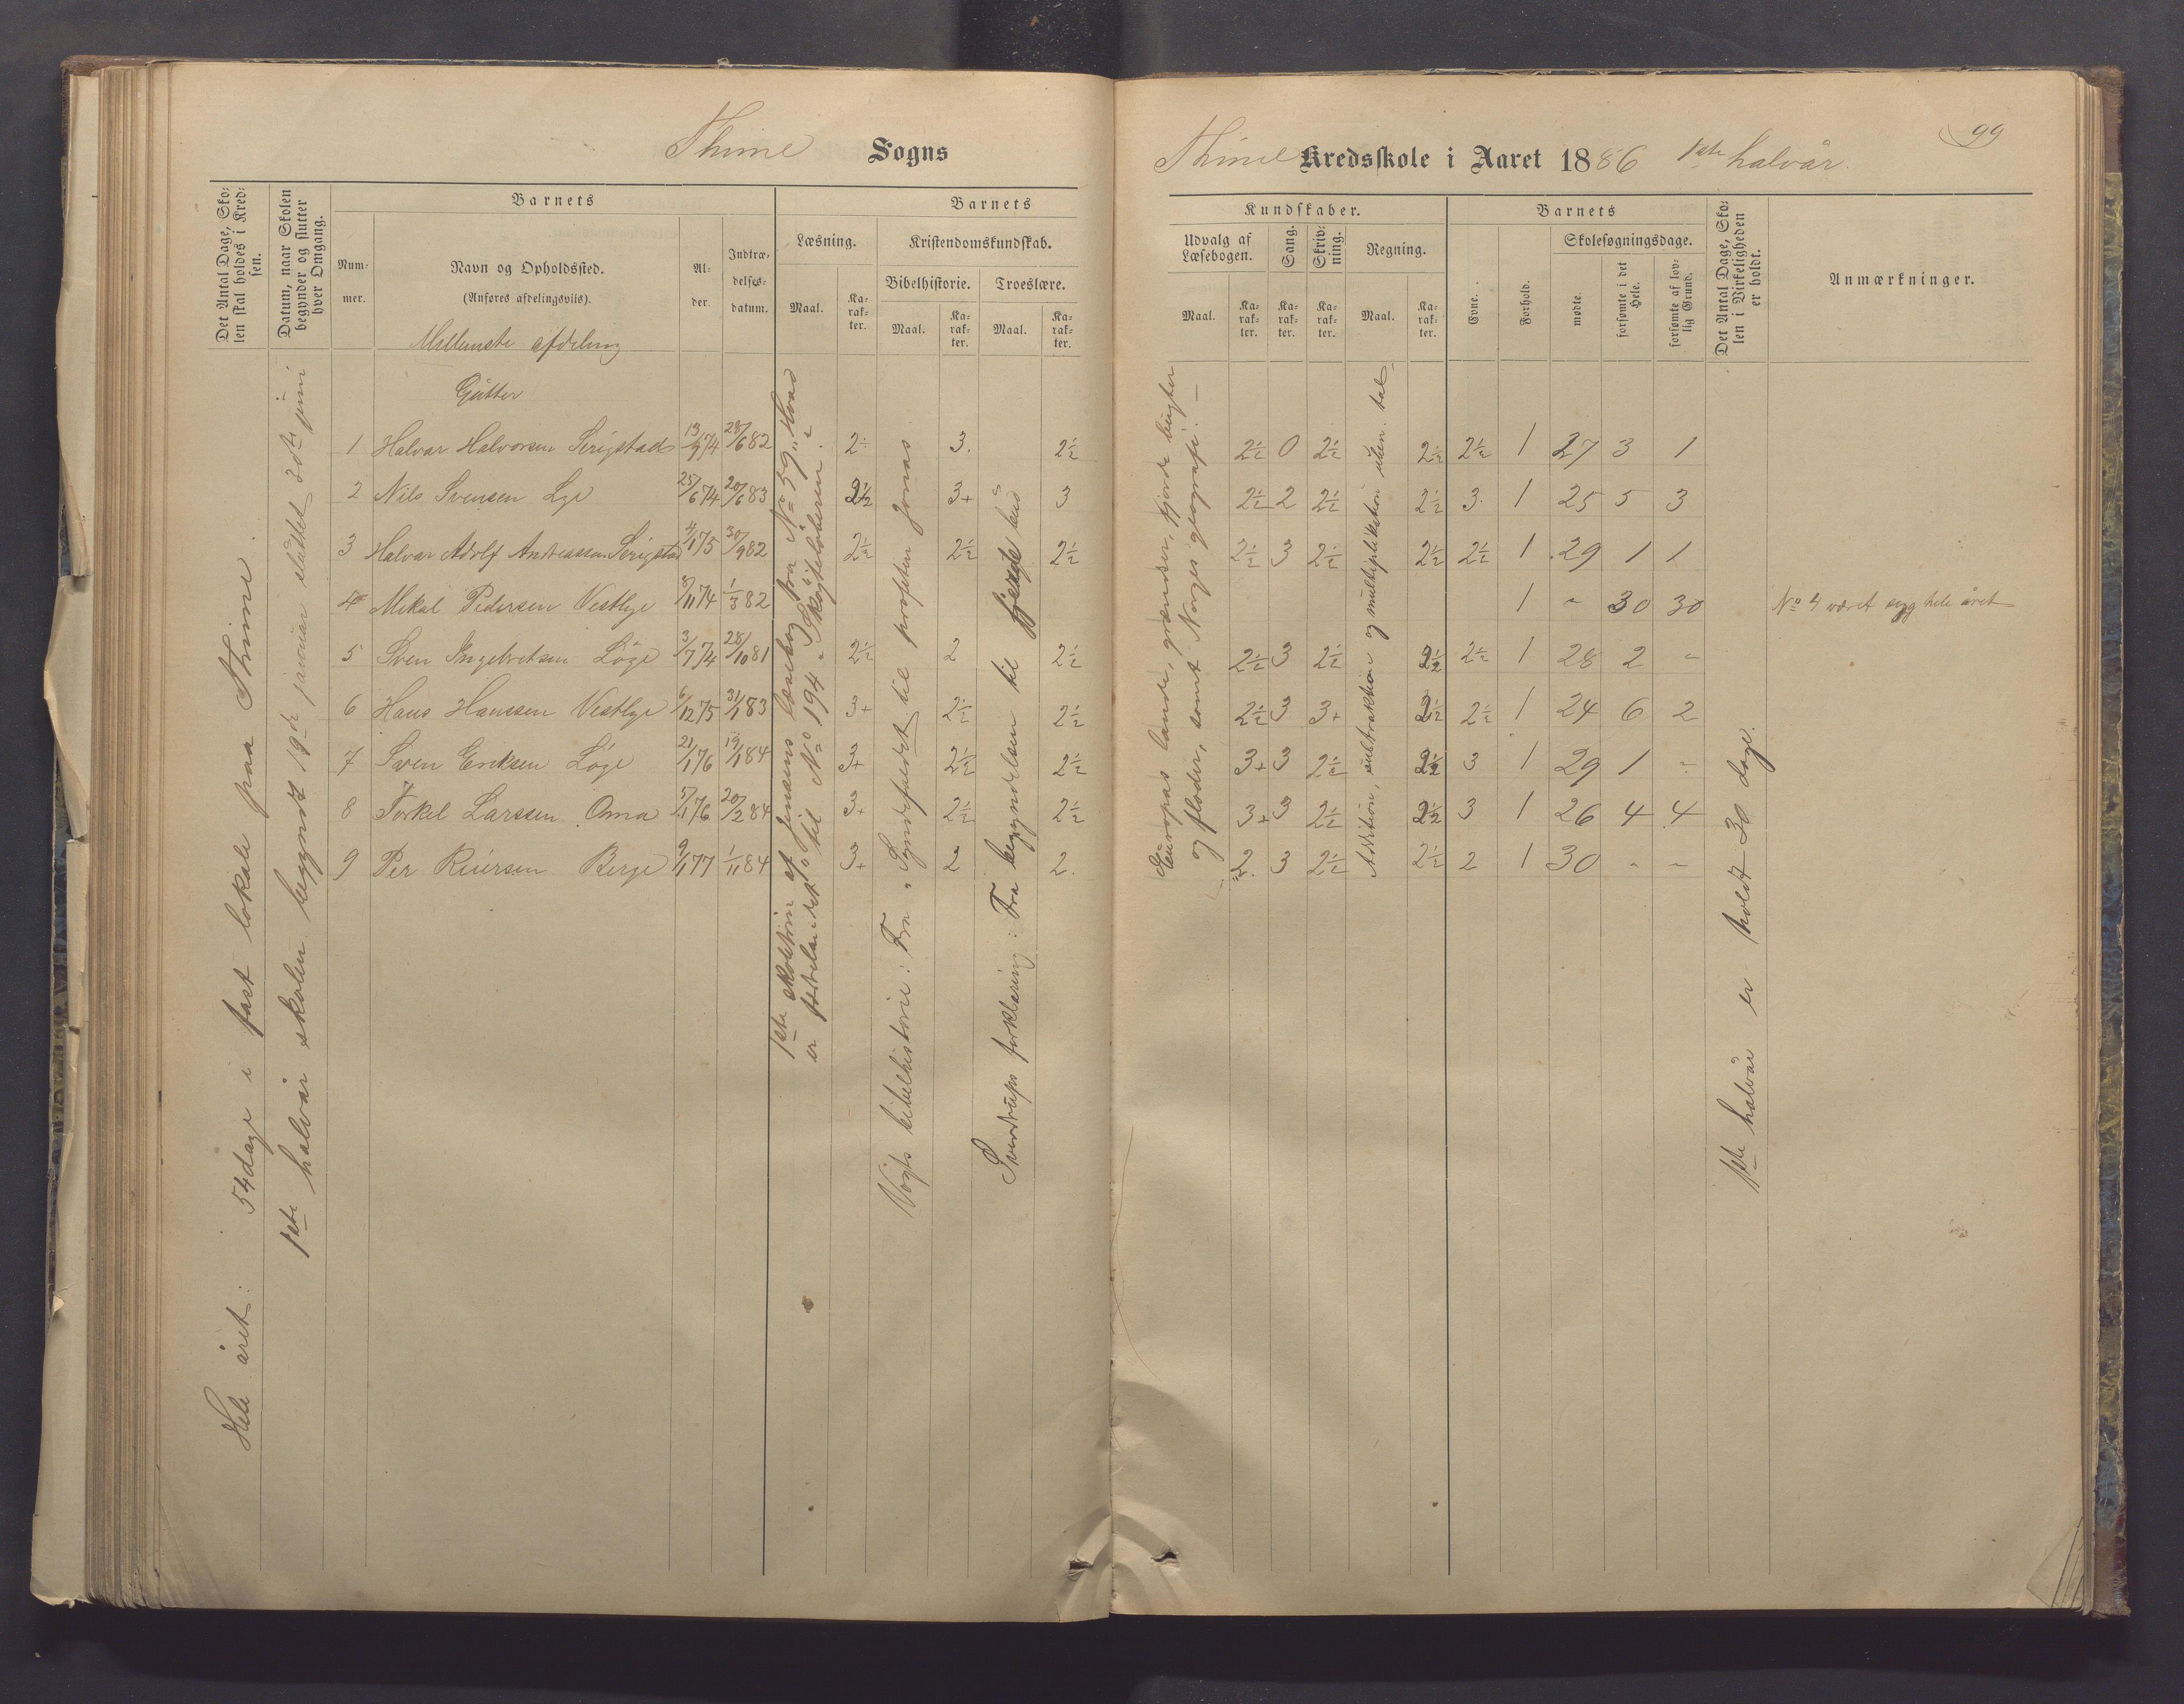 Thime Sogns
Thime Kredsskole i Aaret 1886 1ste halvår.
99
Det Antal Dage, Sko-
len skal holdes i Kred-
sen.
Datum, naar Skolen
begynder og slutter
hver Omgang.
Barnets
Num-
mer.
Navn og Opholdssted.
(Anføres afdelingsviis).
Mellemste afdeling
Al-
der.
Indtræ-
delses-
datum.
Barnets
Læsning.
Maal.
Ka-
rak-
ter.
Kristendomskundskab.
Bibelhistorie.
Maal.
Ka-
rak-
ter.
Troeslære.
Maal.
Ka-
rak-
ter.
Kundskaber.
Udvalg af
Læsebogen.
Maal.
Ka-
rak-
ter.
Sang.
Ka-
rak-
ter.
Skriv-
ning.
Ka-
rak-
ter.
Regning.
Maal.
Ka-
rak-
ter.
Barnets
Evne.
Forhold.
Skolesøgningsdage.
mødte.
forsømte i det
Hele.
forsømte af lov-
lig Grund.
Det Antal Dage, Sko-
len i Virkeligheden
er holdt.
Anmærkninger.
Hele året: 54 dage i fast lokale paa Thime.
1ste halvår skolen begyndt 19de januar sluttet 30te juni
Gutter
1 Halvar Halvorsen Serigstad 13/9 74 28/6 82 2÷ 3. 2½ 2½ 0 2½ 2½ 2½ 1 27 3 1
2 Nils Svensen Lye 25/6 74 20/6 83 2½ 3+ 3 2½ 2 2½ 2½ 3 1 25 5 3
3 Halvar Adolf Andreassen Serigstad 4/1 75 30/9 82 2½ 2½ 2½ 2½ 3 2½ 2½ 2½ 1 29 1 1
4 Mikal Pedersen Vestlye 8/11 74 1/3 82 1 - 30 30 No 4 været syg hele året
5 Sven Ingebretsen Löge 3/7 74 28/10 81 2½ 2 2½ 2½ 3 2½ 2½ 2½ 1 28 2 -
6 Hans Hanssen Vestlye 6/12 75 31/1 83 3+ 2½ 2½ 2½ 3 3+ 2½ 2½ 1 24 6 2
7 Sven Eriksen Löge 21/1 76 19/1 84 3+ 2½ 2½ 3+ 3 2½ 2½ 3 1 29 1 -
8 Torkel Larssen Oma 5/1 76 20/2 84 3+ 2½ 2½ 3+ 3 2½ 2½ 3 1 26 4 4
9 Per Reiersen Berge 9/1 77 1/11 84 3+ 2 2. 2. 3 2½ 2½ 2 1 30 - -
1ste skoletrin af Jensens læsebog fra No 59 "Hvad
er fædrelandet" til No 194 "Skøiteløberen".
Vogts bibelhistorie: Fra "Syndefaldet" til profeten Jonas.
Sverdrups forklaring: Fra begyndelsen til fjerde bud
Europas lande, grændser, fjorde bugter
og floder, samt Norges geografi.
Addition, subtraktion og multiplikation uben. tal
1ste halvår er holdt 30 dage.